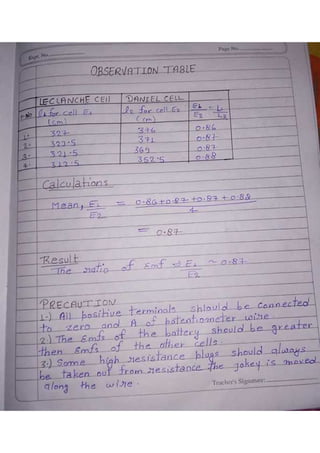 Expt. No.
Page No.
OBSERVATION TABLE
LECLANCHE Cell DANIEL CELL
S.No l1 for cell E1 l2 for cell E2 E1/E2 = L1/L2
(cm) (cm)
1. 327 376 0.86
2. 322.5 371 0.87
3. 321.5 369 0.87
4. 312.5 352.5 0.88
Calculations
Mean, E1/E2 = 0.86+0.87+0.87+0.88 / 4
= 0.87
Result
The ratio of emf = E1/E2 ~ 0.87
PRECAUTION
1.) All positive terminals should be connected
to zero end A of potentiometer wire
2.) The emfs of the battery should be greater
then emfs of the other cells.
3.) Some high resistance plugs should always
be taken out from resistance the jokey is moved
along the wire.
Teacher's Signature: